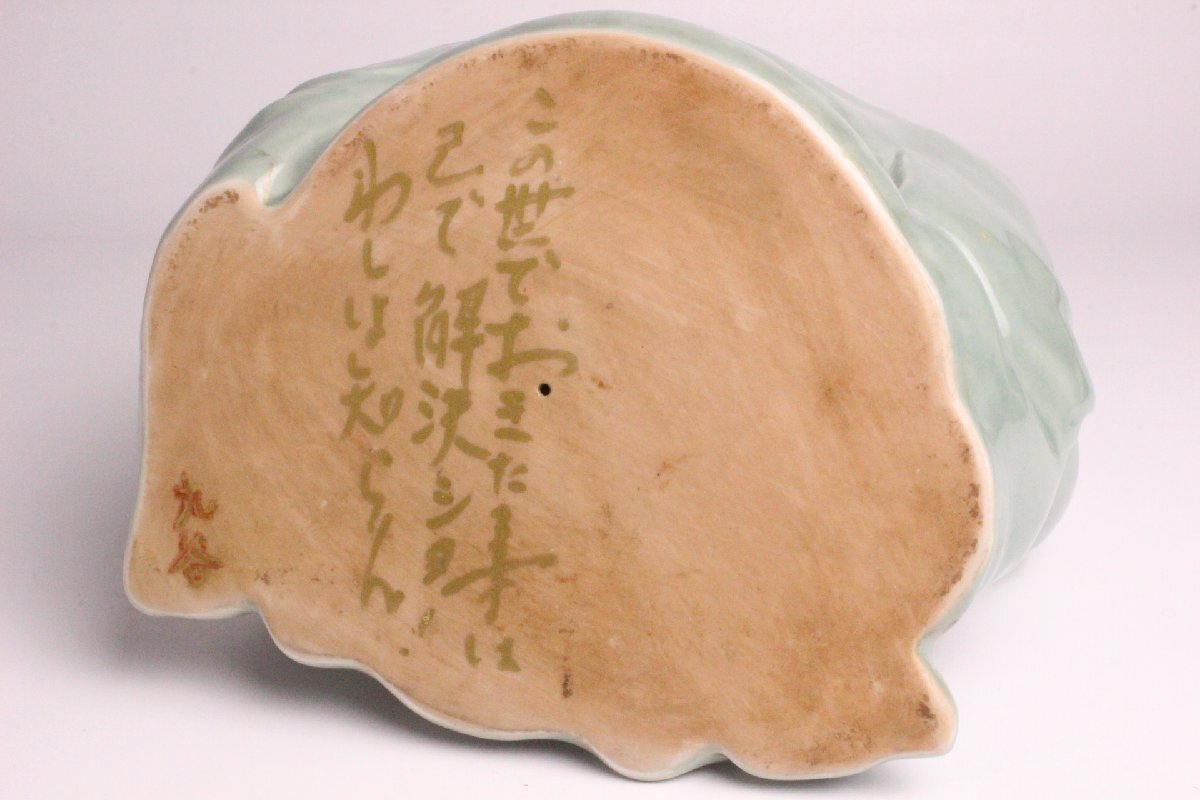 この世でおきた事は
己で解決ショ!
わしは知らん.
九谷